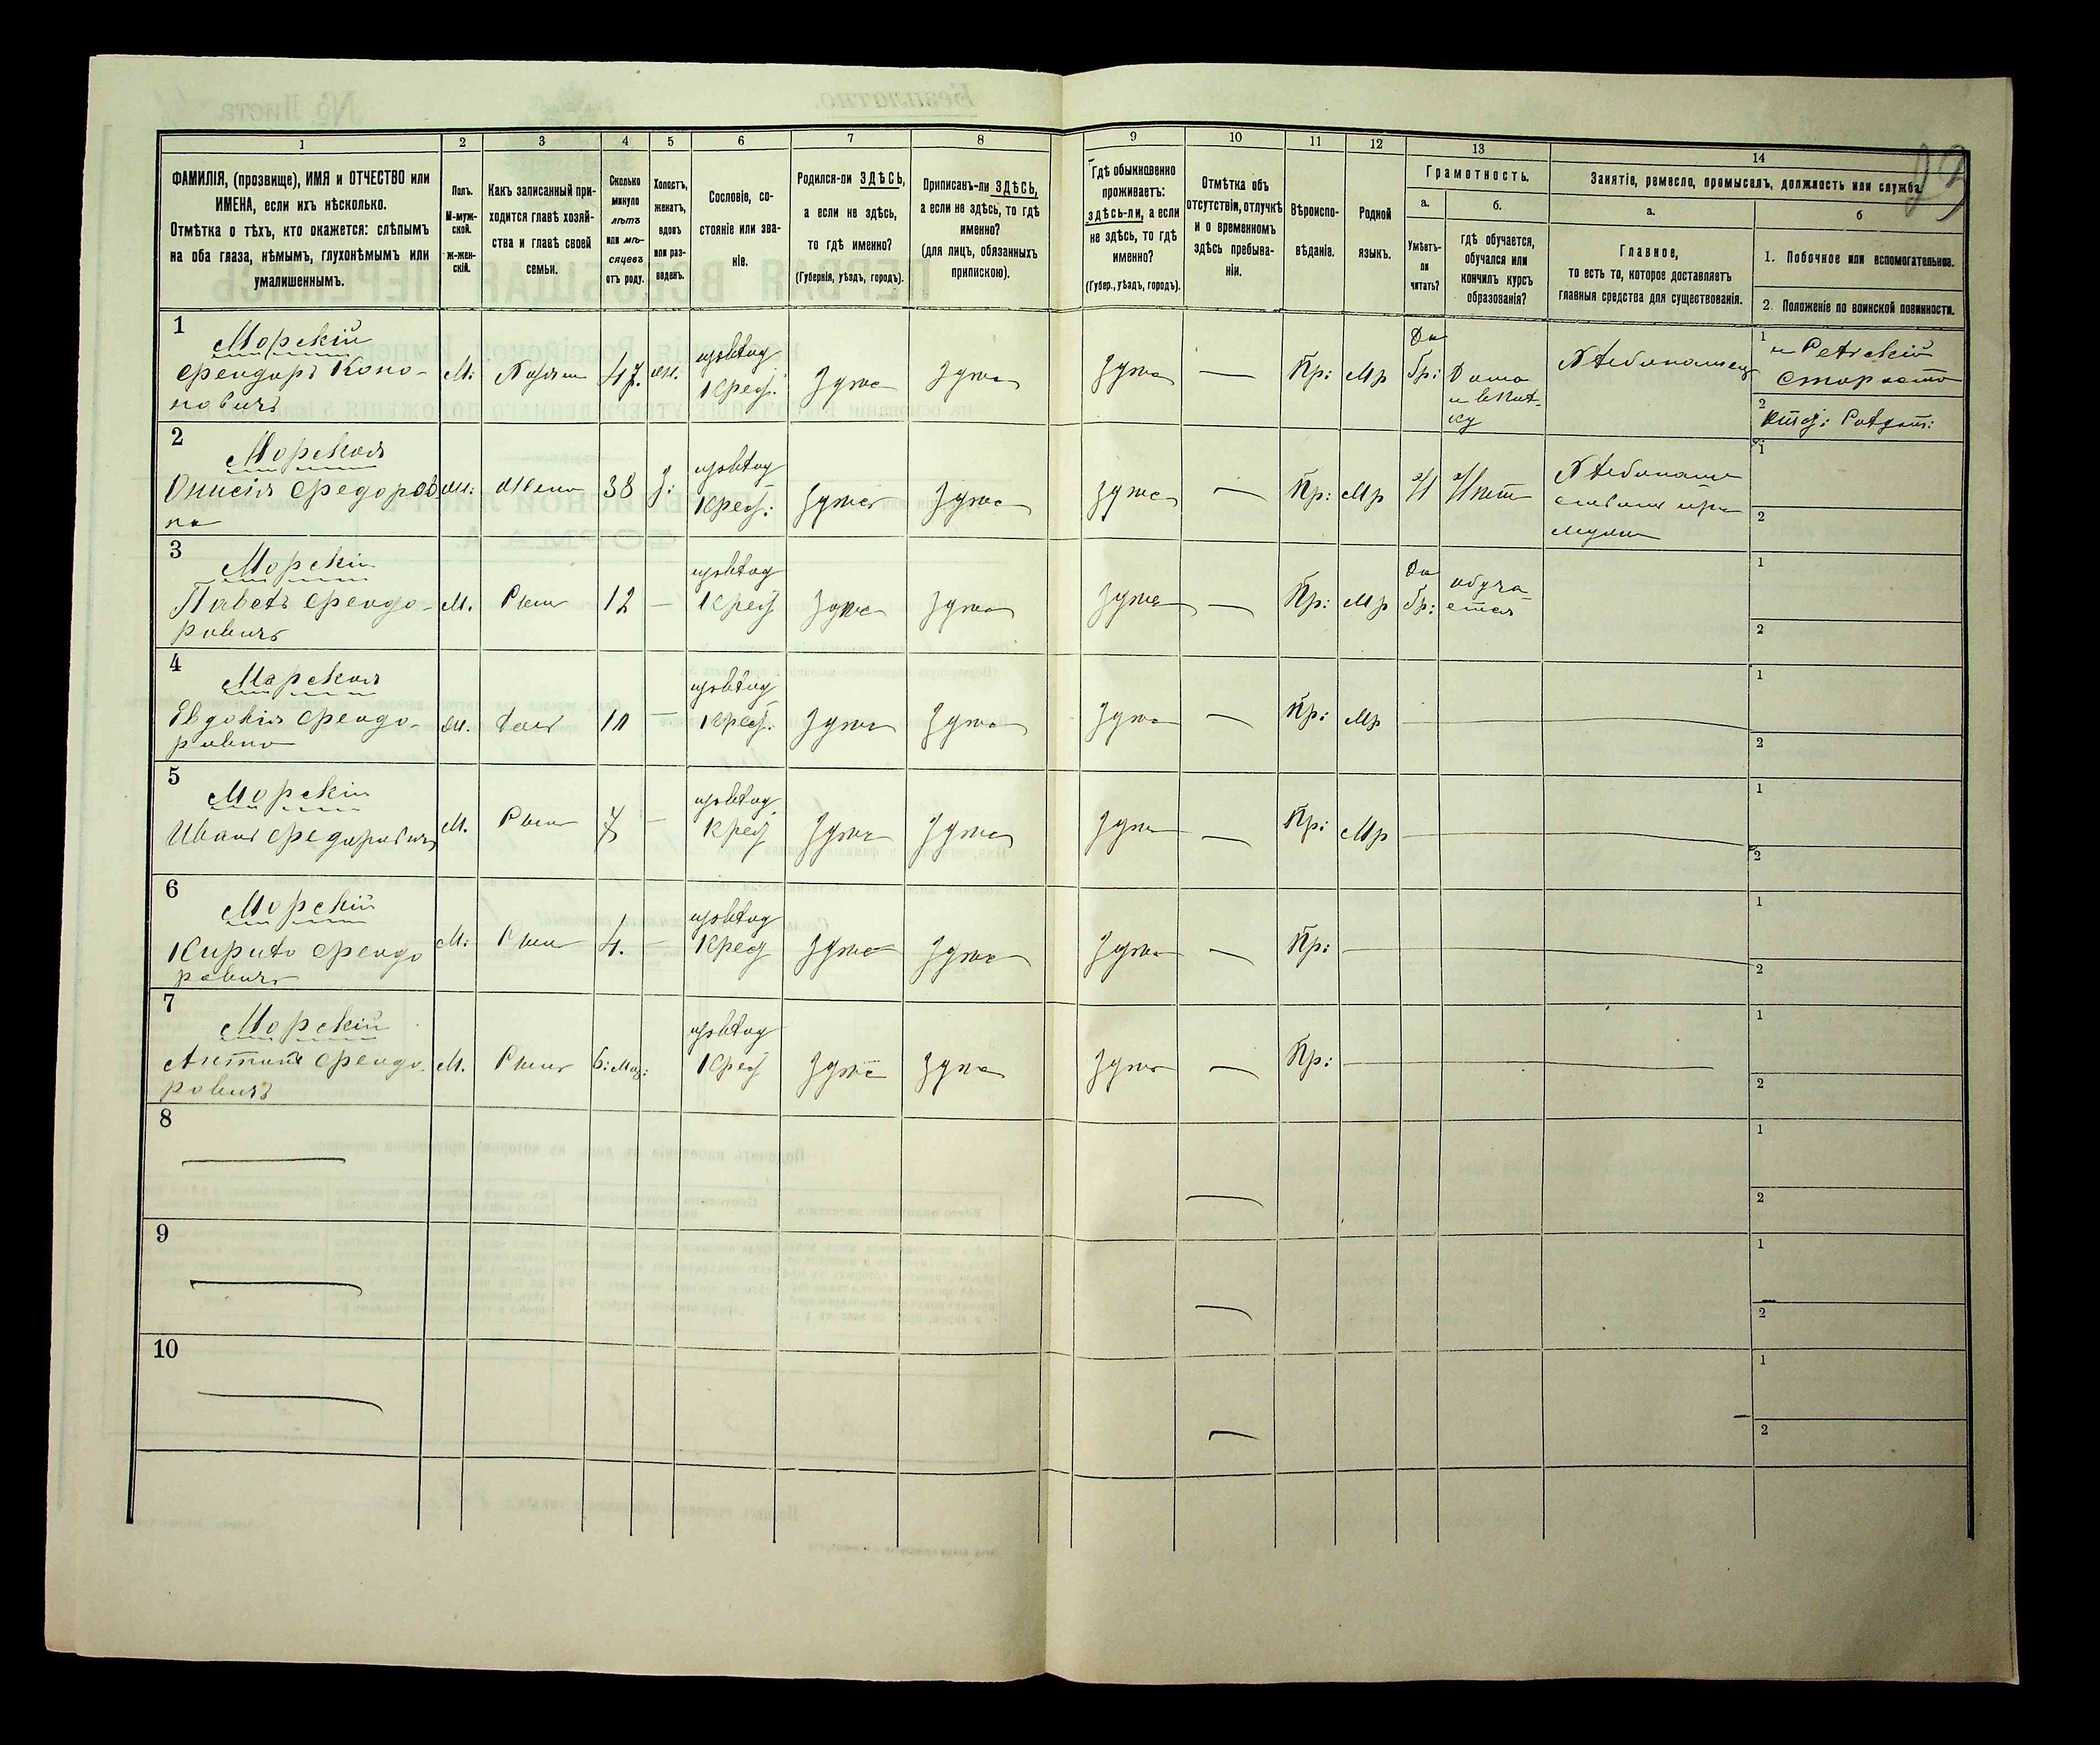 1
2
3
4
5
6
7
8
9
10
11
12
13
14
ФАМИЛІЯ, (прозвище), ИМЯ и ОТЧЕСТВО или
ИМЕНА, если ихъ нѣсколько.
Отмѣтка о тѣхъ, кто окажется: слѣпымъ
на оба глаза, нѣмымъ, глухонѣмымъ или
умалишеннымъ.
Полъ.
М-муж-
ской.
Ж-жен-
скій.
Какъ записанный при-
ходится главѣ хозяй-
ства и главѣ своей
семьи.
Сколько
минуло
лѣтъ
или мѣ-
сяцевъ
отъ роду.
Холостъ,
женатъ,
вдовъ
или раз-
веденъ.
Сословіе, со-
стояніе или зва-
ніе.
Родился-ли ЗДѢСЬ,
а если не здѣсь,
то гдѣ именно?
(Губернія, уѣздъ, городъ).
Приписанъ-ли ЗДѢСЬ,
а если не здѣсь, то гдѣ
именно?
(для лицъ, обязанныхъ
припискою).
Гдѣ обыкновенно
проживаетъ:
здѣсь-ли, а если
не здѣсь, то гдѣ
именно?
(Губер., уѣздъ, городъ).
Отмѣтка объ
отсутствіи, отлучкѣ
и о временномъ
здѣсь пребыва-
ніи.
Вѣроиспо-
вѣданіе.
Родной
языкъ.
Грамотность.
а.
б.
Умѣетъ-
ли
читать?
гдѣ обучается,
обучался или
кончилъ курсъ
образованія?
Занятіе, ремесло, промыселъ, должность или служба.
а.
б
Главное,
то есть то, которое доставляетъ
главныя средства для существованія.
1. Побочное или вспомогательное.
2. Положеніе по воинской повинности.
1
Морскій
Феодоръ Коно-
новичъ
М. 47. Крес. Здѣсь Здѣсь Здѣсь — Пр: Мр
Да
Хлѣбопашец
1 и Сельскій
Староста
2
2
Морская
Онисія Федоров
на
38 Крес: Здѣсь Здѣсь Здѣсь — Пр: Мр Н Нѣт
1
2
3
Морскій
Павелъ Феодо-
ровичъ
М. Сынъ 12 — Крес Здѣсь Здѣсь Здѣсь — Пр: Мр
Да
обуча-
ется
1
2
4
Морская
Евдокія Феодо-
ровна
Дочь 10 — Крес. Здѣсь Здѣсь Здѣсь — Пр: Мр —
1
2
5
Морскій
Иванъ Федоровичъ
М. Сынъ 7 — Крес Здѣсь Здѣсь Здѣсь — Пр: Мр —
1
2
6
Морскій
Кирило Феодо
ровичъ
М: Сынъ 4. — Крес Здѣсь Здѣсь Здѣсь — Пр: —
1
2
7
Морскій
Антонъ Феодо-
ровичъ
М. Сынъ Крес Здѣсь Здѣсь Здѣсь — Пр: —
1
2
8
1
2
9
1
2
10
1
2